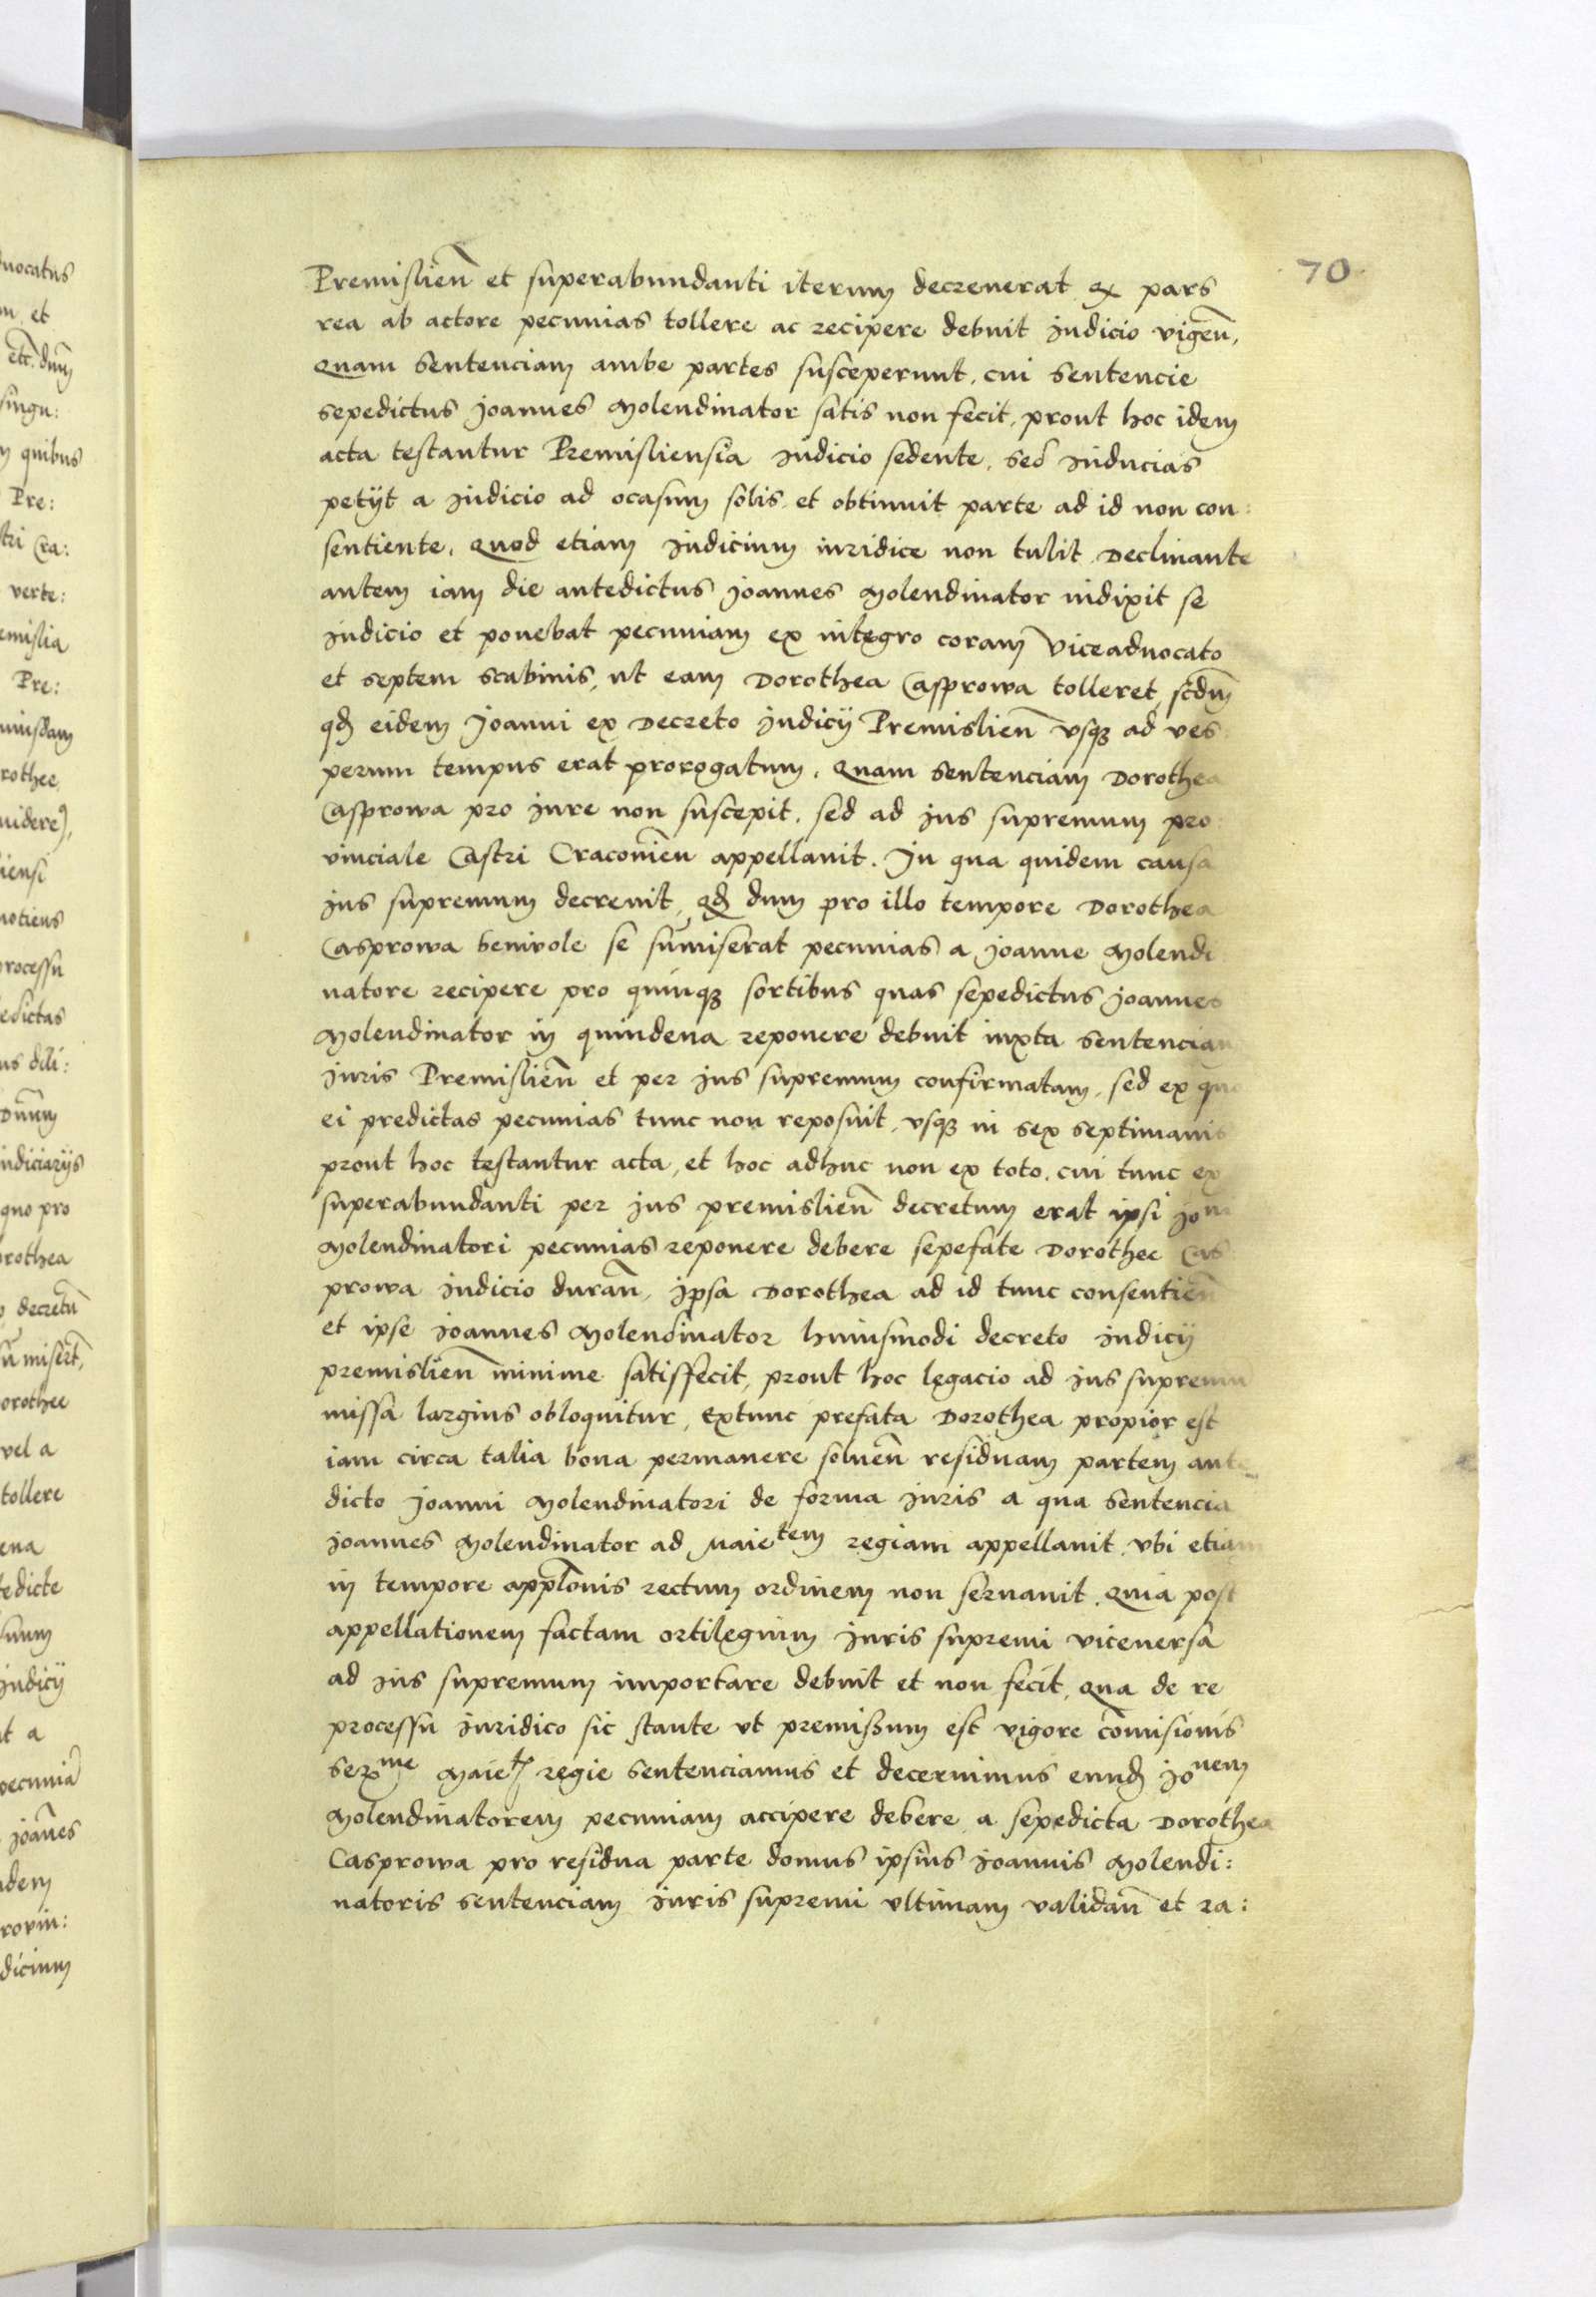 70
Premislien̄ et superabundanti iterum decreuerat qd pars
rea ab actore pecunias tollere ac recipere debuit Iudicio vigen̄,
Quam sentenciam ambe partes susceperunt, cui sentencie
sepedictus Joannes Molendinator satis non fecit, prout hoc idem
acta testantur Premisliensia Iudicio sedente, sed Inducias
petijt a Iudicio ad ocasum solis, et obtinuit parte ad id non con:
sentiente, Quod etiam Iudicium iuridice non tulit Declinante
autem iam die antedictus Joannes Molendinator indixit se
Iudicio et ponebat pecuniam ex integro coram viceaduocato
et septem scabinis, ut eam Dorothea Casprowa tolleret, scdm̄
qd eidem Joanni ex Decreto Iudicij Premislien̄ vsq3 ad ves:
perum tempus erat prorogatum, Quam sentenciam Dorothea
Casprowa pro Iure non suscepit, sed ad Ius supremum pro:
vinciale Castri Cracouien̄ appellauit. In qua quidem causa
Ius supremum decreuit, qd dum pro illo tempore Dorothea
Casprowa beniuole se sūmiserat pecunias a Joanne Molendi:
natore recipere pro quinq3 sortibus quas sepedictus Joannes
Molendinator in quindena reponere debuit iuxta sentenciam
Iuris Premislien̄ et per Ius supremum confirmatam, sed ex quo
ei predictas pecunias tunc non reposuit, vsq3 in sex septimanis
prout hoc testantur acta, et hoc adhuc non ex toto, cui tunc ex
superabundanti per Ius premislien̄ decretum erat ipsi Joni
Molendinatori pecunias reponere debere sepefate Dorothee Cas
prowa Iudicio duran̄, Ipsa Dorothea ad id tunc consentien̄
et ipse Joannes Molendinator huiusmodi decreto Iudicij
premislien̄ minime satisfecit, prout hoc legacio ad Ius supremum
missa largius obloquitur, Extunc prefata Dorothea propior est
iam circa talia bona permanere soluen̄ residuam partem ante
dicto Joanni Molendinatori de forma Iuris a qua sentencia
Joannes Molendinator ad Maietem regiam appellauit, vbi etiam
in tempore appl̄onis rectum ordinem non seruauit, Quia post
appellationem factam ortilegium Iuris supremi viceuersa
ad Ius supremum importare debuit et non fecit, Qua de re
processu Iuridico sic stante vt premissum est vigore com̄isionis
Serme Maietis regie sentenciamus et decernimus eund Jonem
Molendinatorem pecuniam accipere debere a sepedicta Dorothea
Casprowa pro residua parte domus ipsius Joannis Molendi:
natoris sentenciam Iuris supremi vltimam validan̄ et ra: